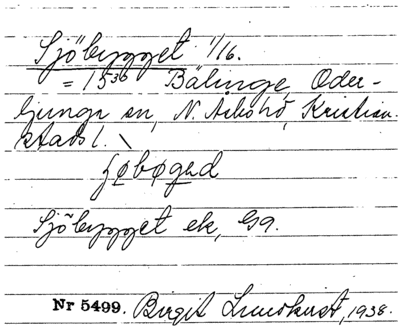 Sjöbygget 1/16.
= 15³⁶ Bälinge, Oder-
ljunga sn, N. Åsbo hd, Kristian-
stads l.
ʃøbøgəd
Sjöbygget ek, G9.
Nr 5499. Birgit Lundkvist, 1938.